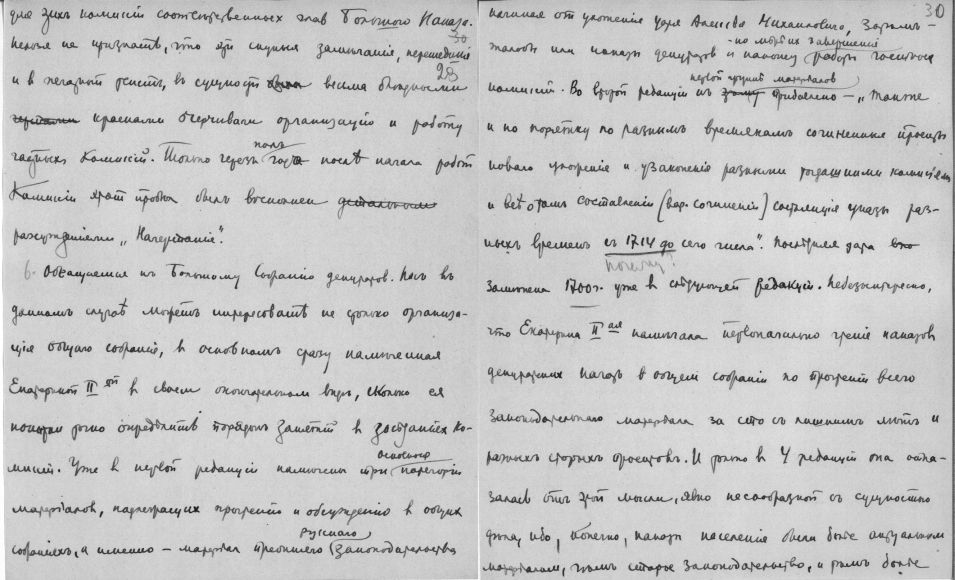 для этих комиссий соответственных глав Большого Наказа.
30
Нельзя не признать, что эти скупыя замечания, перешедшия
28
и в печатный, в сущности весьма бледными
красками очерчивали организацию и работу
частных Комиссий. Только через пол года после начала работ
Комиссии этот пробел был восполнен детальными
разсуждениями „Начертания".
6. Обращаемся къ Большому Собранию депутатов. Насъ въ
данномъ случаѣ можетъ интересовать не столько организа-
ция общаго собрания, в основномъ сразу намеченная
Екатериной II ой в своем окончательном виде, сколько ея
попытки точно определить порядок занятий в заседаниях Ко-
мисии. Уже в первой редакции намечены три основные категории
материалов, подлежащих прочтению и обсуждению в общих
собранияхъ, а именно – материал прежнего русскаго (законодательства
30
начиная от уложения царя Алексея Михайловича, затем –
жалобы или наказы депутатов и наконец по мере их завершения работы частных
комисий. Во второй редакции къ первой группе материалов прибавлено – „также
и по порядку по разнымъ временамъ сочиненные проекты
новаго уложения и узаконения разными тогдашними комисиями
и всѣ о томъ составлении (вар. сочинении) состоящия указы раз-
ныхъ временъ съ 1714 до сего числа". Последняя дата
почему?
заменена 1700 г. уже в следующей редакции. Небезынтересно,
что Екатерина II ая намечала первоначально чтение наказов
депутатских в общем собрании по прочтении всего
законодательнаго материала за сто съ лишнимъ летъ и
разныхъ старыхъ проектовъ. И только в 4 редакции она отка-
залась отъ этой мысли, явно несообразной съ сущностью
дела, ибо, конечно, наказы населения были более актуальным
материалом, чемъ старое законодательство, и темъ более